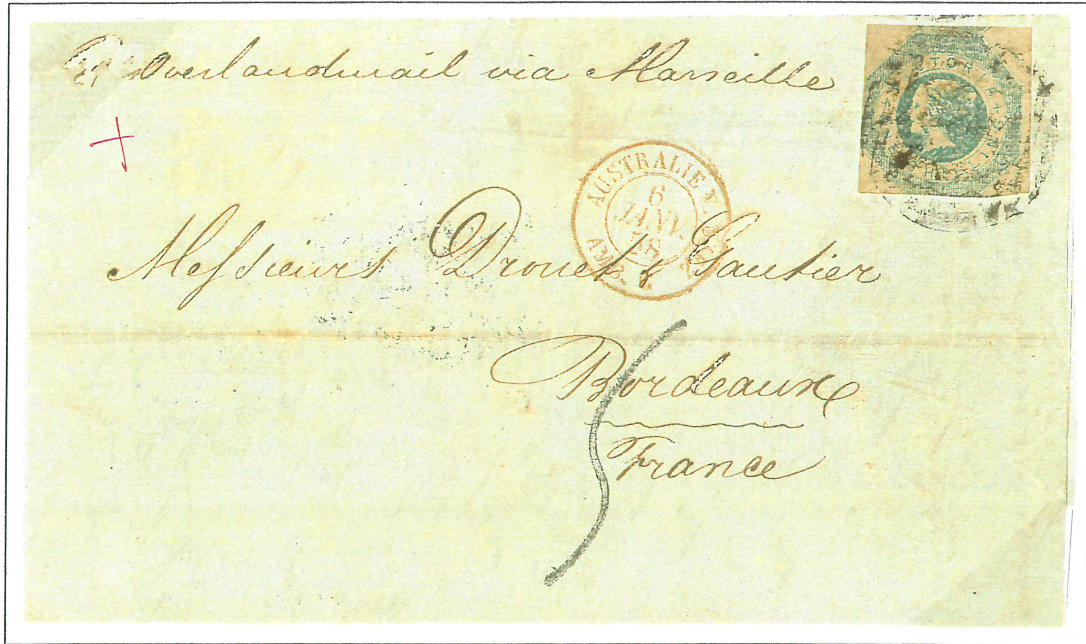 Overlandmail via Marseille
VICTORIA
AUSTRALIE
6
JANV.
AMB.
Messieurs Drouet & Gautier
5
Bordeaux
France